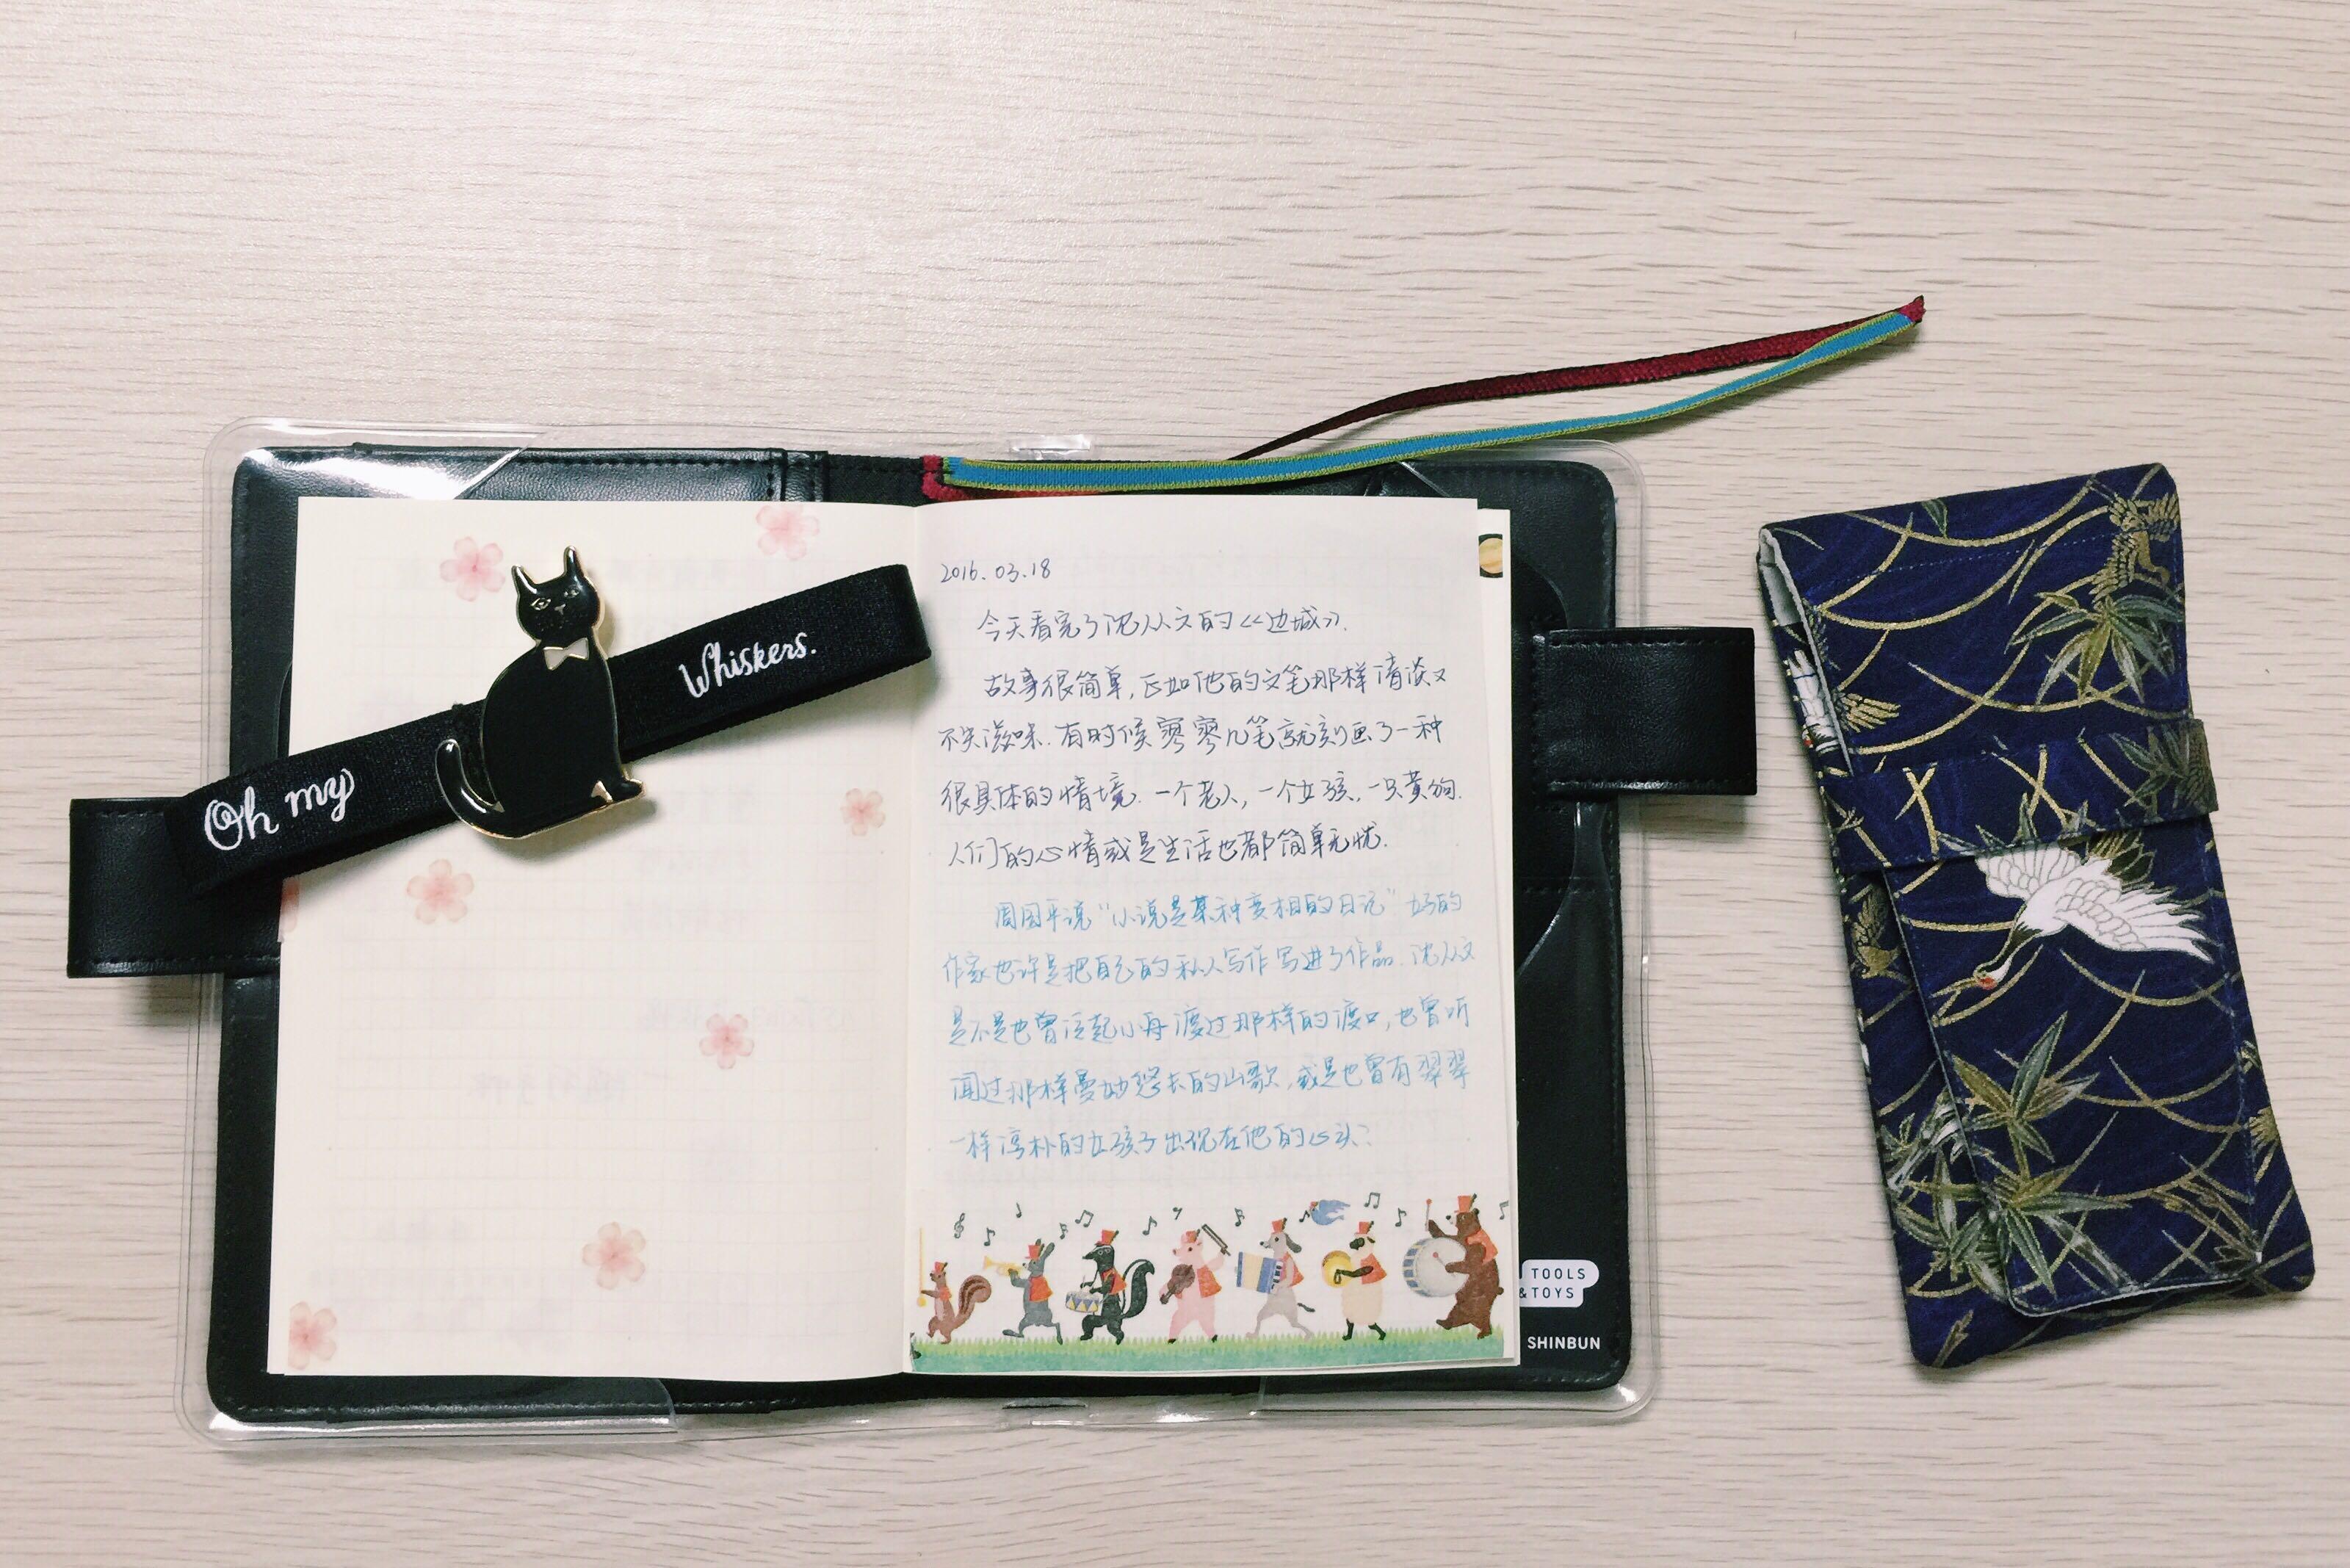 Oh my
Whiskers.
2016.03.18
今天看完了沈从文的《边城》.
故事很简单,正如他的文笔那样清淡又
不失滋味.有时候寥寥几笔就刻画了一种
很具体的情境.一个老人,一个女孩,一只黄狗.
人们的心情或是生活也都简单无忧.
周国平说“小说是某种变相的日记”好的
作家也许是把自己的私人写作写进了作品.沈从文
是不是也曾泛起小舟渡过那样的渡口,也曾听
闻过那样曼妙悠长的山歌,或是也曾有翠翠
一样淳朴的女孩子出现在他的心头?
TOOLS
&TOYS
SHINBUN